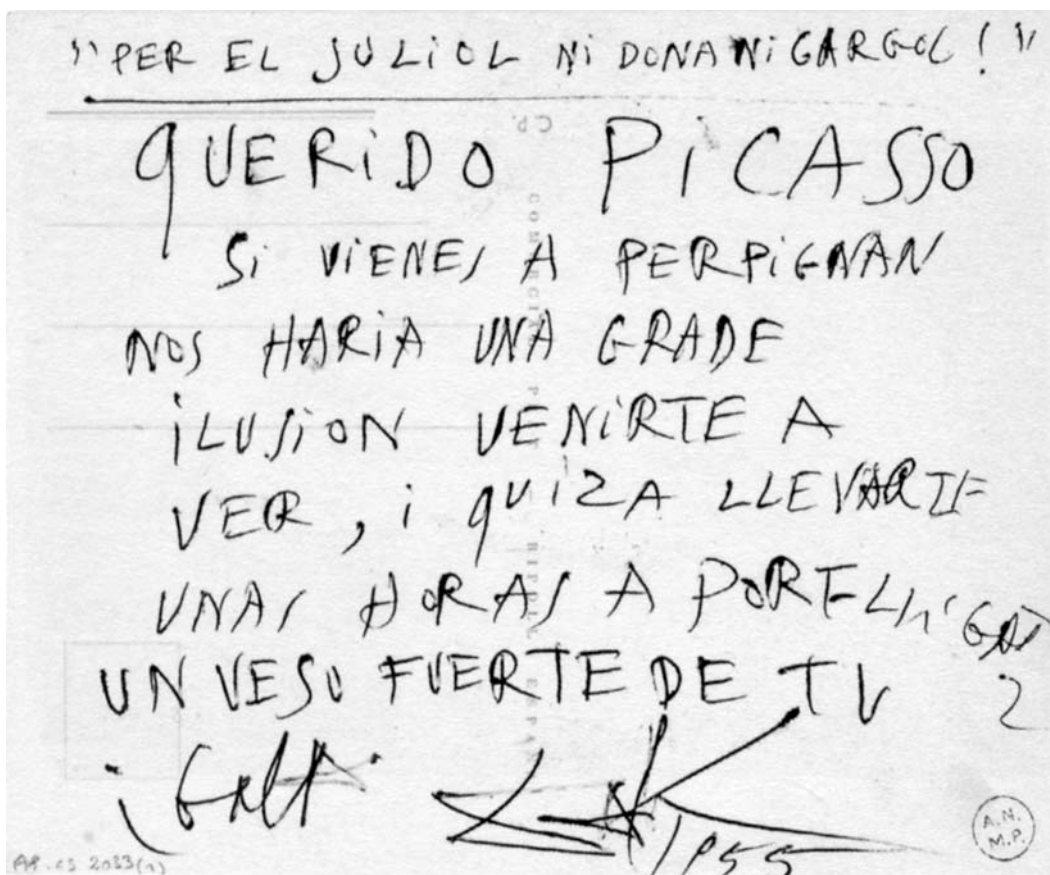 "PER EL JULiOL Ni DONA Ni GARGOL!"
QUERiDO PiCASSO
Si ViENES A PERPiGNAN
NOS HARiA UNA GRADE
iLUSiON VENiRTE A
VER, i QUiZA LLEVARTE
UNAS HORAS A PORTLLiGAT
UN VESO FUERTE DE TU
i GALA
1955
CP.
A.N.
M.P.